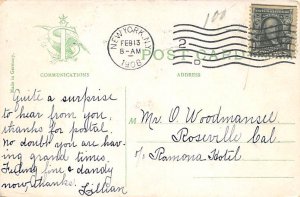 100
NEW YORK, N.Y.
FEB 13
8-AM
1908
POST CARD
COMMUNICATIONS
ADDRESS
Made in Germany.
Quite a surprise
to hear from you,
thanks for postal,
no doubt you are hav-
ing grand times.
Feeling fine & dandy
now, thanks.
Lillian
M. O. Woodmansee
Roseville Cal
c/o Ramona Hotel